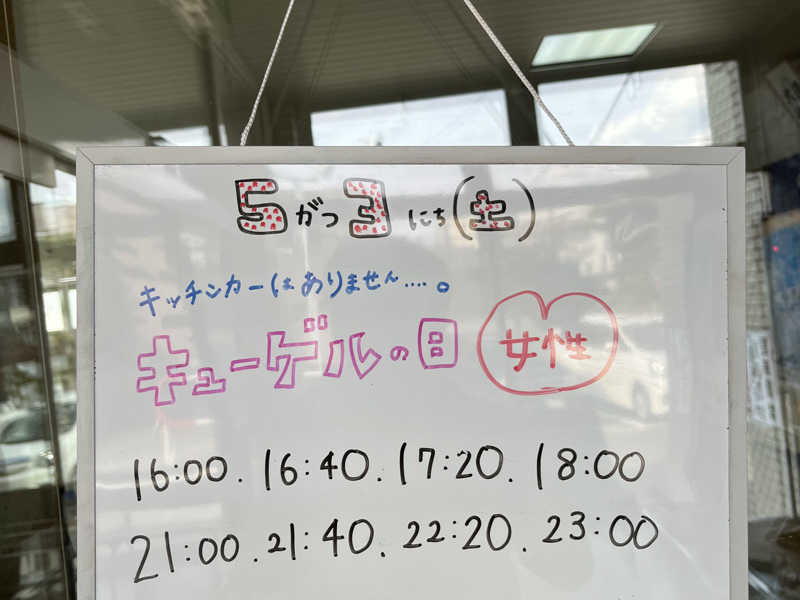 5がつ3にち(土)
キッチンカーはありません....。
キューゲルの日 女性
16:00. 16:40. 17:20. 18:00
21:00. 21:40. 22:20. 23:00